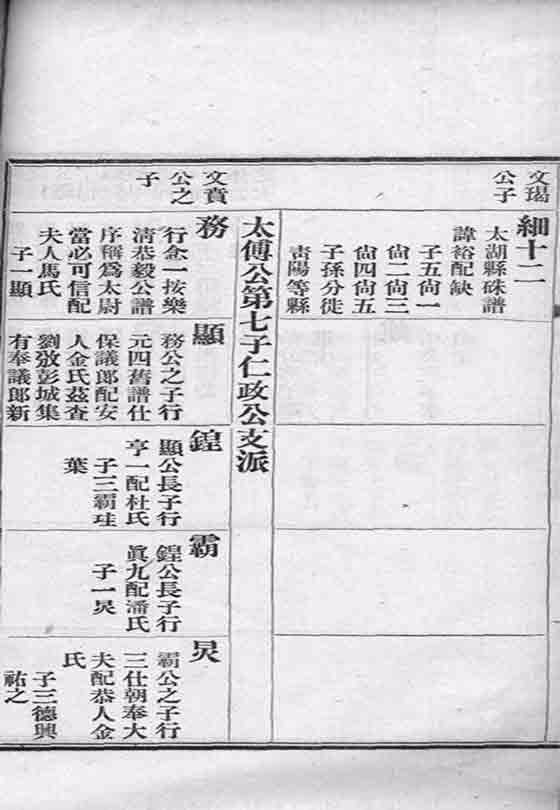 文瑒
公子
細十二
太湖縣硃譜
諱裕配缺
子五尙一
尙二尙三
尙四尙五
子孫分徙
靑陽等縣
太傅公第七子仁政公支派
文賁
公之
子
務
行悆一按樂
淸恭毅公譜
序稱爲太尉
當必可信配
夫人馬氏
子一顯
顯
務公之子行
元四舊譜仕
保議郞配安
人金氏茲查
劉攽彭城集
有奉議郞新
鍠
顯公長子行
亨一配杜氏
子三霸珪
葉
霸
鍠公長子行
眞九配潘氏
子一炅
炅
霸公之子行
三仕朝奉大
夫配恭人金
氏
子三德興
祐之